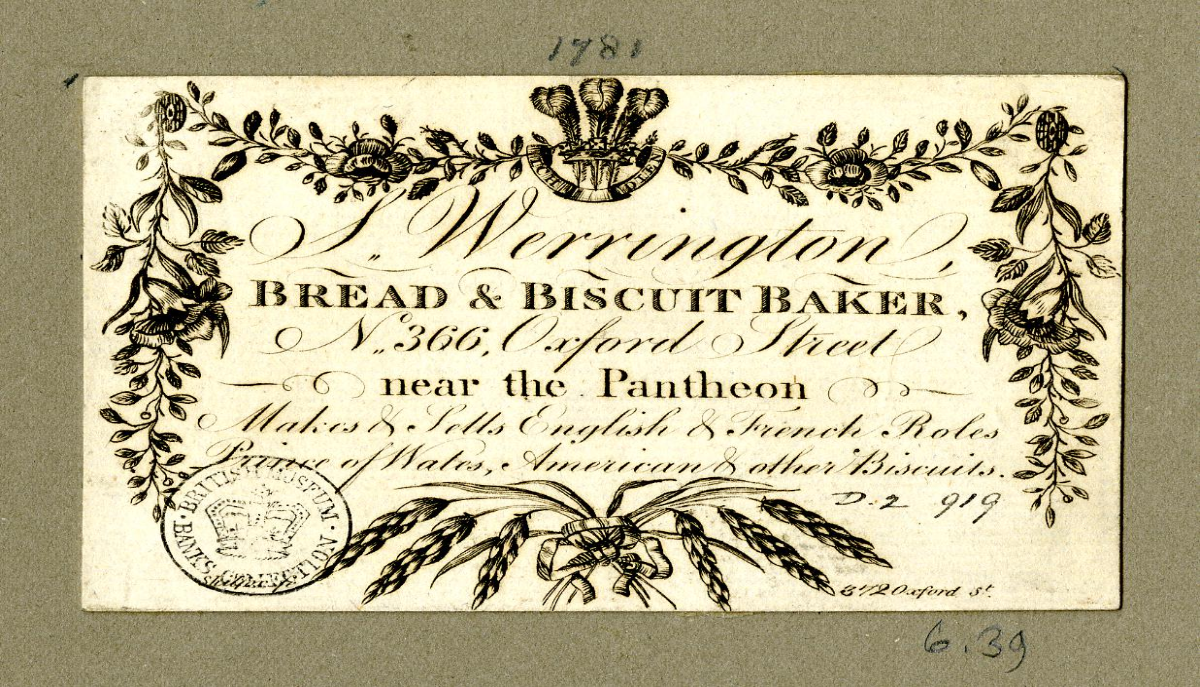 1781
S. Werrington,
BREAD & BISCUIT BAKER,
No. 366, Oxford Street
near the Pantheon
Makes & Sells English & French Roles
Prince of Wales, American & other Biscuits.
D.2 919
BRITISH MUSEUM
BANKS COLLECTION
372 Oxford St.
6.39